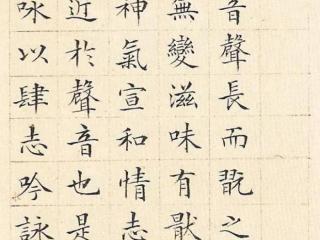 音聲長而翫之
無變滋味有猒
神氣宣和情志
近於聲音也是
咏以肆志吟詠